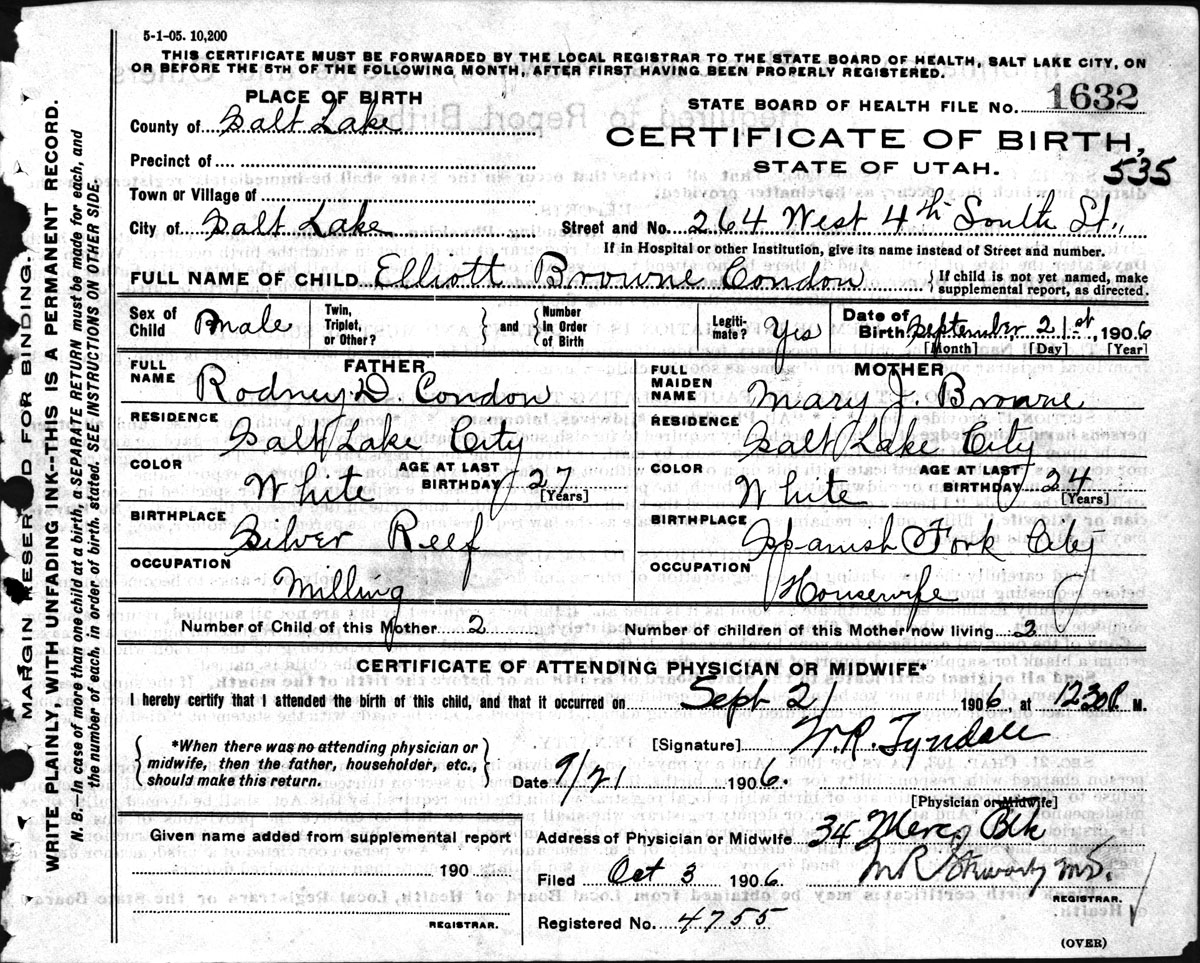 5-1-05. 10,200
THIS CERTIFICATE MUST BE FORWARDED BY THE LOCAL REGISTRAR TO THE STATE BOARD OF HEALTH, SALT LAKE CITY, ON
OR BEFORE THE 5TH OF THE FOLLOWING MONTH, AFTER FIRST HAVING BEEN PROPERLY REGISTERED.
PLACE OF BIRTH
STATE BOARD OF HEALTH FILE No. 1632
County of Salt Lake
CERTIFICATE OF BIRTH,
Precinct of
STATE OF UTAH.
535
Town or Village of
City of Salt Lake
Street and No. 264 West 4th South St.,
If in Hospital or other Institution, give its name instead of Street and number.
FULL NAME OF CHILD Elliott Browne Condon
{If child is not yet named, make
supplemental report, as directed.
Sex of
Child
male
Twin,
Triplet,
or Other?
} and {
Number
In Order
of Birth
Legiti-
mate?
Yes
Date of
Birth September, 21st, 1906
[Month] [Day] [Year]
FATHER
FULL
NAME
Rodney D. Condon
MOTHER
FULL
MAIDEN
NAME
Mary J. Browne
RESIDENCE
Salt Lake City
RESIDENCE
Salt Lake City
COLOR
White
AGE AT LAST
BIRTHDAY 27
[Years]
COLOR
White
AGE AT LAST
BIRTHDAY 24
[Years]
BIRTHPLACE
Silver Reef
BIRTHPLACE
Spanish Fork City
OCCUPATION
Milling
OCCUPATION
Housewife
Number of Child of this Mother 2
Number of children of this Mother now living 2
CERTIFICATE OF ATTENDING PHYSICIAN OR MIDWIFE*
I hereby certify that I attended the birth of this child, and that it occurred on Sept 21 1906, at 1230 P. M.
{*When there was no attending physician or
midwife, then the father, householder, etc.,
should make this return.}
[Signature] W. R. Tyndale
Date 9/21 1906.
[Physician or Midwife]
Given name added from supplemental report
190
REGISTRAR.
Address of Physician or Midwife 34 Merc Blk
Filed Oct 3 1906.
M R Stewart MD.
REGISTRAR.
Registered No. 4755
(OVER)
MARGIN RESERVED FOR BINDING.
WRITE PLAINLY WITH UNFADING INK--THIS IS A PERMANENT RECORD.
N. B.--In case of more than one child at a birth, a SEPARATE RETURN must be made for each, and
the number of each, in order of birth, stated. SEE INSTRUCTIONS ON OTHER SIDE.